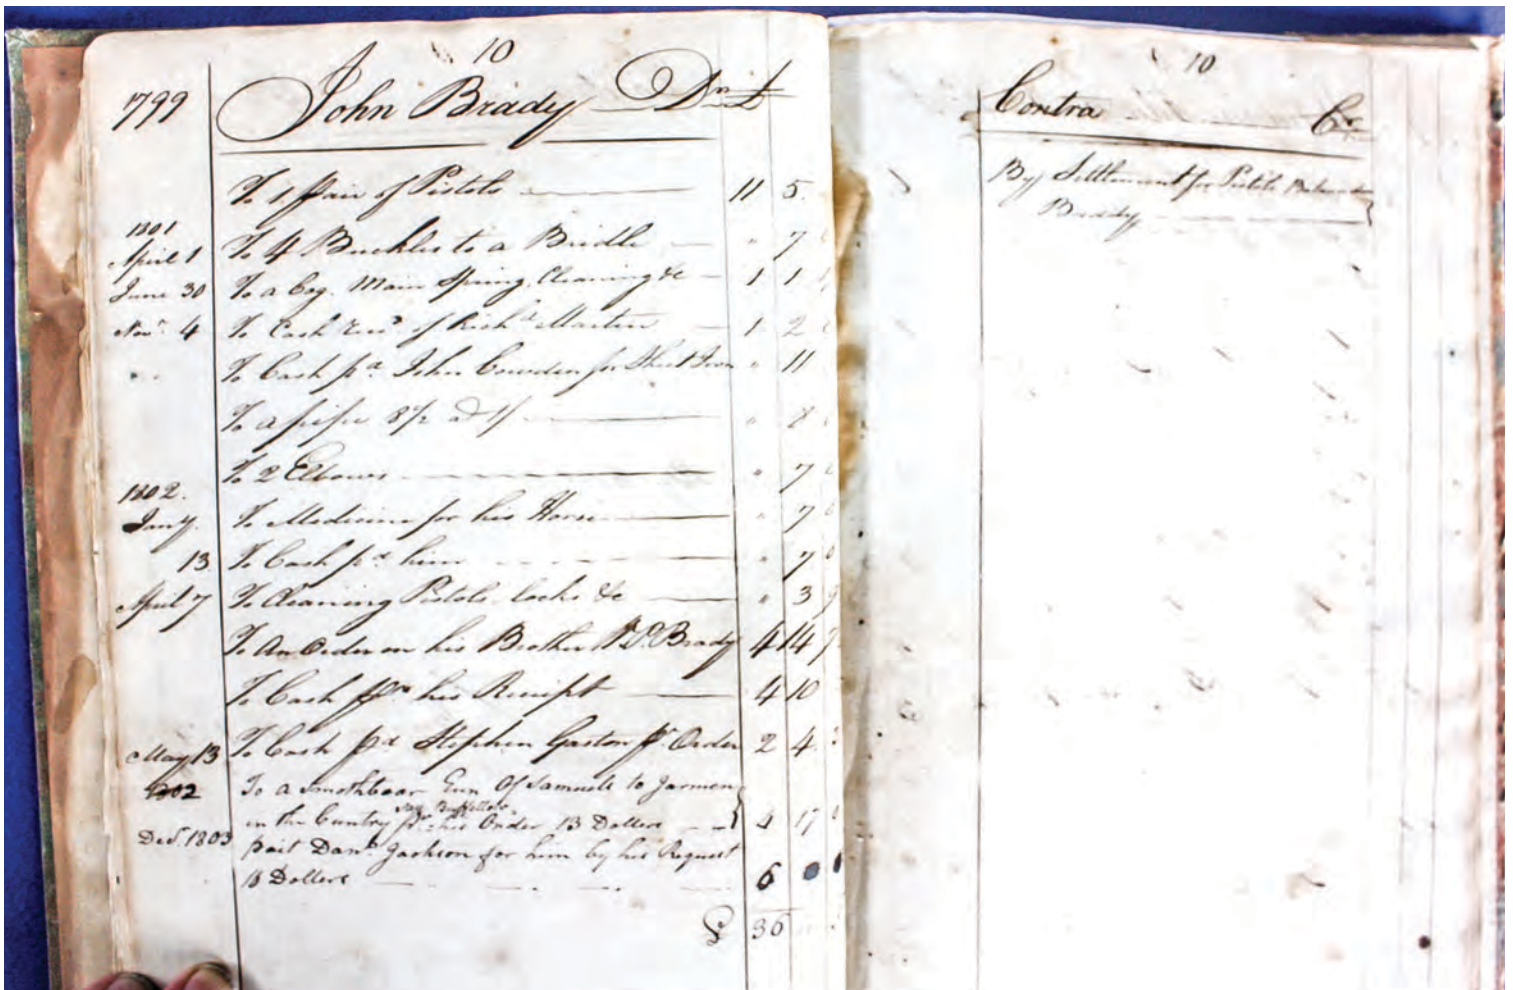 10
1799 John Brady Dr £
To 1 Pair of Pistols 11 5
1801
April 1 To 4 Buckles to a Bridle " 7
June 30 To a Cog. Main Spring, Cleaning &c 1 1
Novr 4 To Cash Recd of Richd Martin 1 2
To Cash pd John Cowden for Sheet Iron " 11
To a pipe 8½ at 1/ " 8
To 2 Elbows " 7
1802.
Jany. To Medicine for his Horse " 7
13 To Cash pd him " 7
April 7 To Cleaning Pistols locks &c " 3 9
To An Order on his Brother Wm P. Brady 4 14 7
To Cash pr his Receipt 4 10
May 13 To Cash pd Stephen Gaston pr Order 2 4
1802 To a Smothboar Gun Of Samuele to Jarmen
in the Cuntry pr his Order 13 Dollers 4 17
Decr 1803 pait Danl Jackson for him by his Request
Dollers 6
£ 36
10
Contra Cr
By Settlement for Pistols
Brady